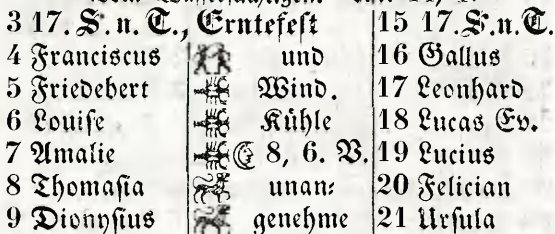 3 17. S. n. T., Erntefest 15 17. S. n. T.
4 Franciscus und 16 Gallus
5 Friedebert Wind. 17 Leonhard
6 Louiſe Kühle 18 Lucas Ev.
7 Amalie 8, 6. V. 19 Lucius
8 Thomaſia unan: 20 Felician
9 Dionyſius genehme 21 Urſula